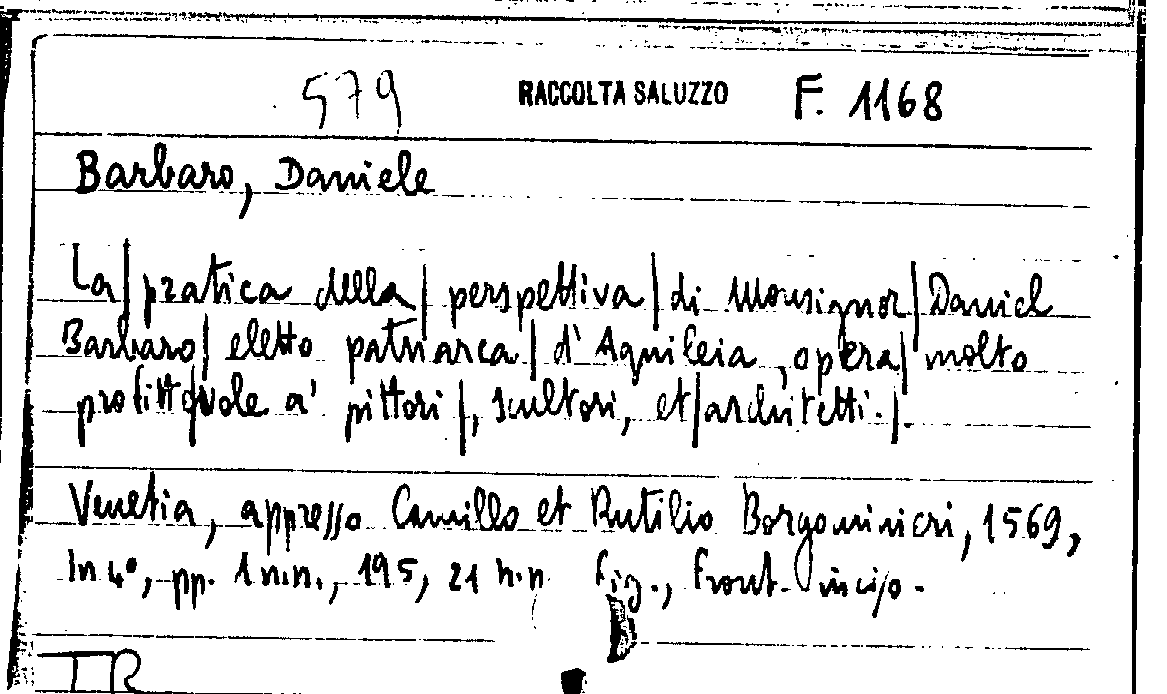 579 RACCOLTA SALUZZO F. 1168
Barbaro, Daniele
La|pratica della|perspettiva|di Monsignor|Daniel
Barbaro|eletto patriarca|d'Aquileia, opera|molto
profitto|vole a' pittori|, scultori, et|architetti.|.
Venetia, appresso Camillo et Rutilio Borgominieri, 1569,
In 4°, pp. 1 n.n., 195, 21 n.n. fig., front. inciso.
TR